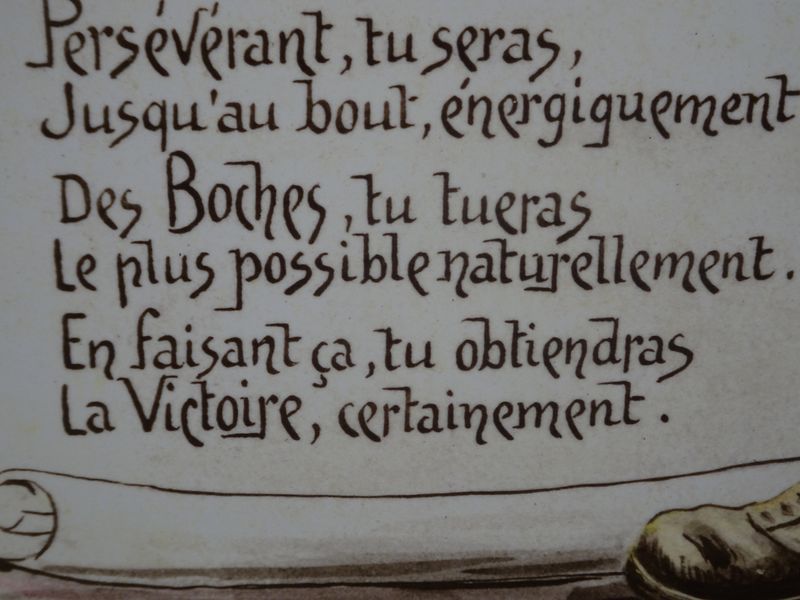 Persévérant, tu seras,
Jusqu'au bout, énergiquement
Des Boches, tu tueras
Le plus possible naturellement.
En faisant ça, tu obtiendras
La Victoire, certainement.